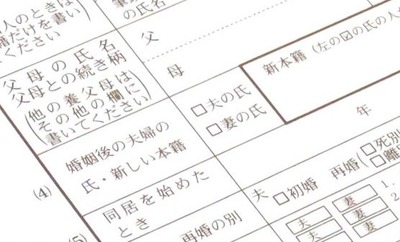 人のときは
籍だけを書い
ください
の氏名
父
父母の氏名
父母との続き柄
他の養父母は
その他の欄に
書いてください
母
新本籍(左の☑の氏の人が
婚姻後の夫婦の
氏・新しい本籍
□夫の氏
□妻の氏
年
(4)
同居を始めた
とき
夫
□初婚
再婚
□死別
□離別
再婚の別
夫 妻 1.
夫 妻 2
夫 妻
(5)